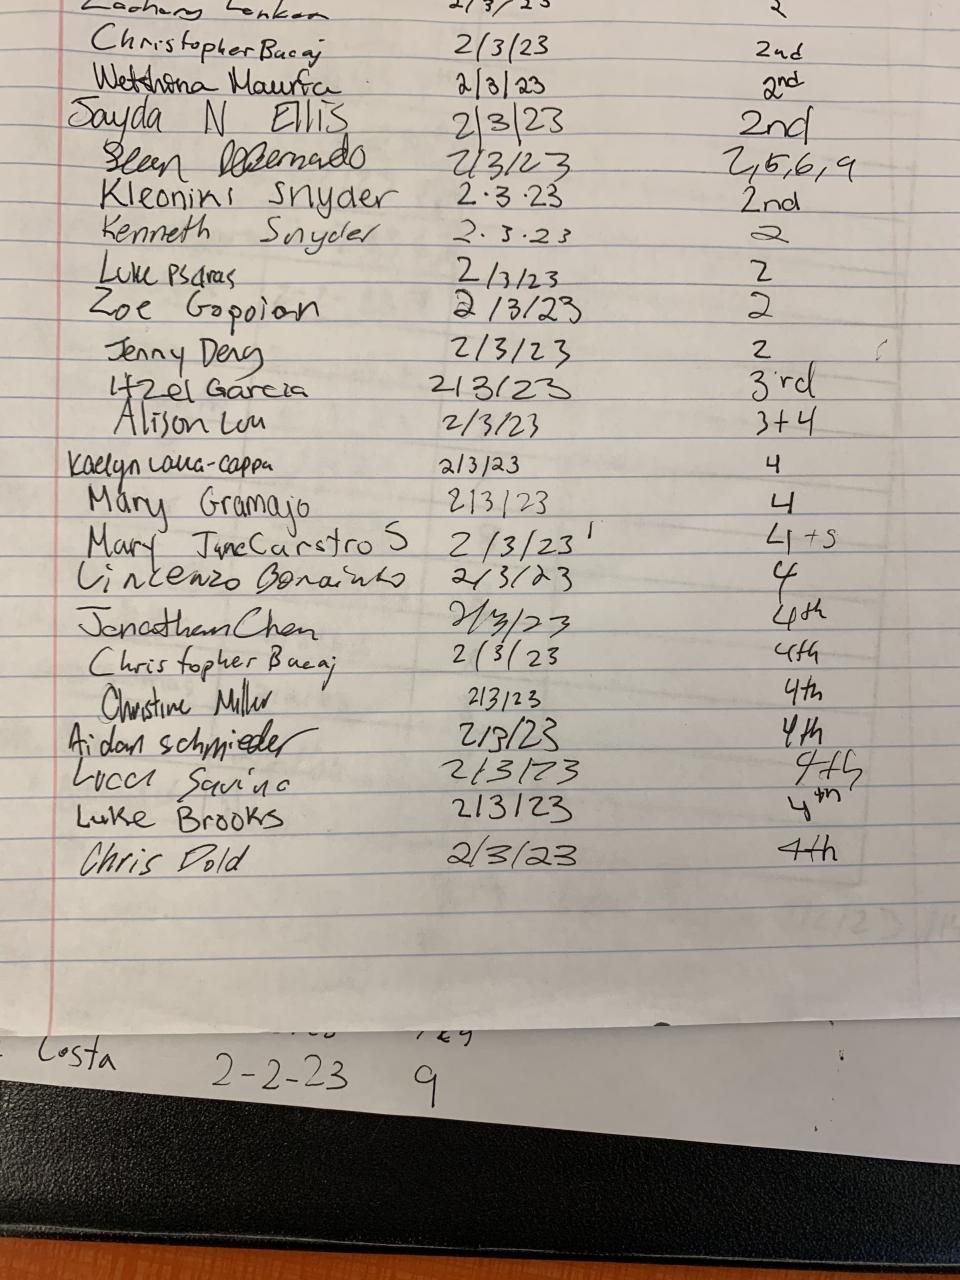 Zachary 2/3/23 2
Christopher Bacaj 2/3/23 2nd
Wetshona Maurica 2/3/23 2nd
Jayda N Ellis 2/3/23 2nd
Sean 2/3/23 2,5,6,9
Kleoniki Snyder 2.3.23 2nd
Kenneth Snyder 2.3.23 2
Luke Psaras 2/3/23 2
Zoe Gopoian 2/3/23 2
Jenny Deng 2/3/23 2
Itzel Garcia 2/3/23 3rd
Alison Lou 2/3/23 3+4
Kaelyn 2/3/23 4
Mary Gramajo 2/3/23 4
Mary Jane Carstro S 2/3/23 4+5
Vincenzo 2/3/23 4
Jonathan Chen 2/3/23 4th
Christopher Bacaj 2/3/23 4th
Christine Miller 2/3/23 4th
Aidan Schmieder 2/3/23 4th
Lucca Savino 2/3/23 4th
Luke Brooks 2/3/23 4th
Chris Dold 2/3/23 4th
Costa 2-2-23 9